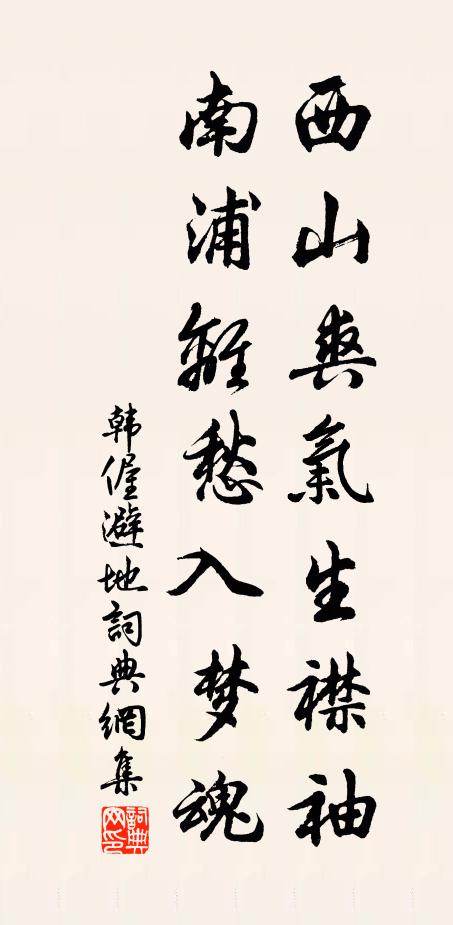 西山爽氣生襟袖
南浦離愁入梦魂
韩偓避地詞典網集
詞典网印